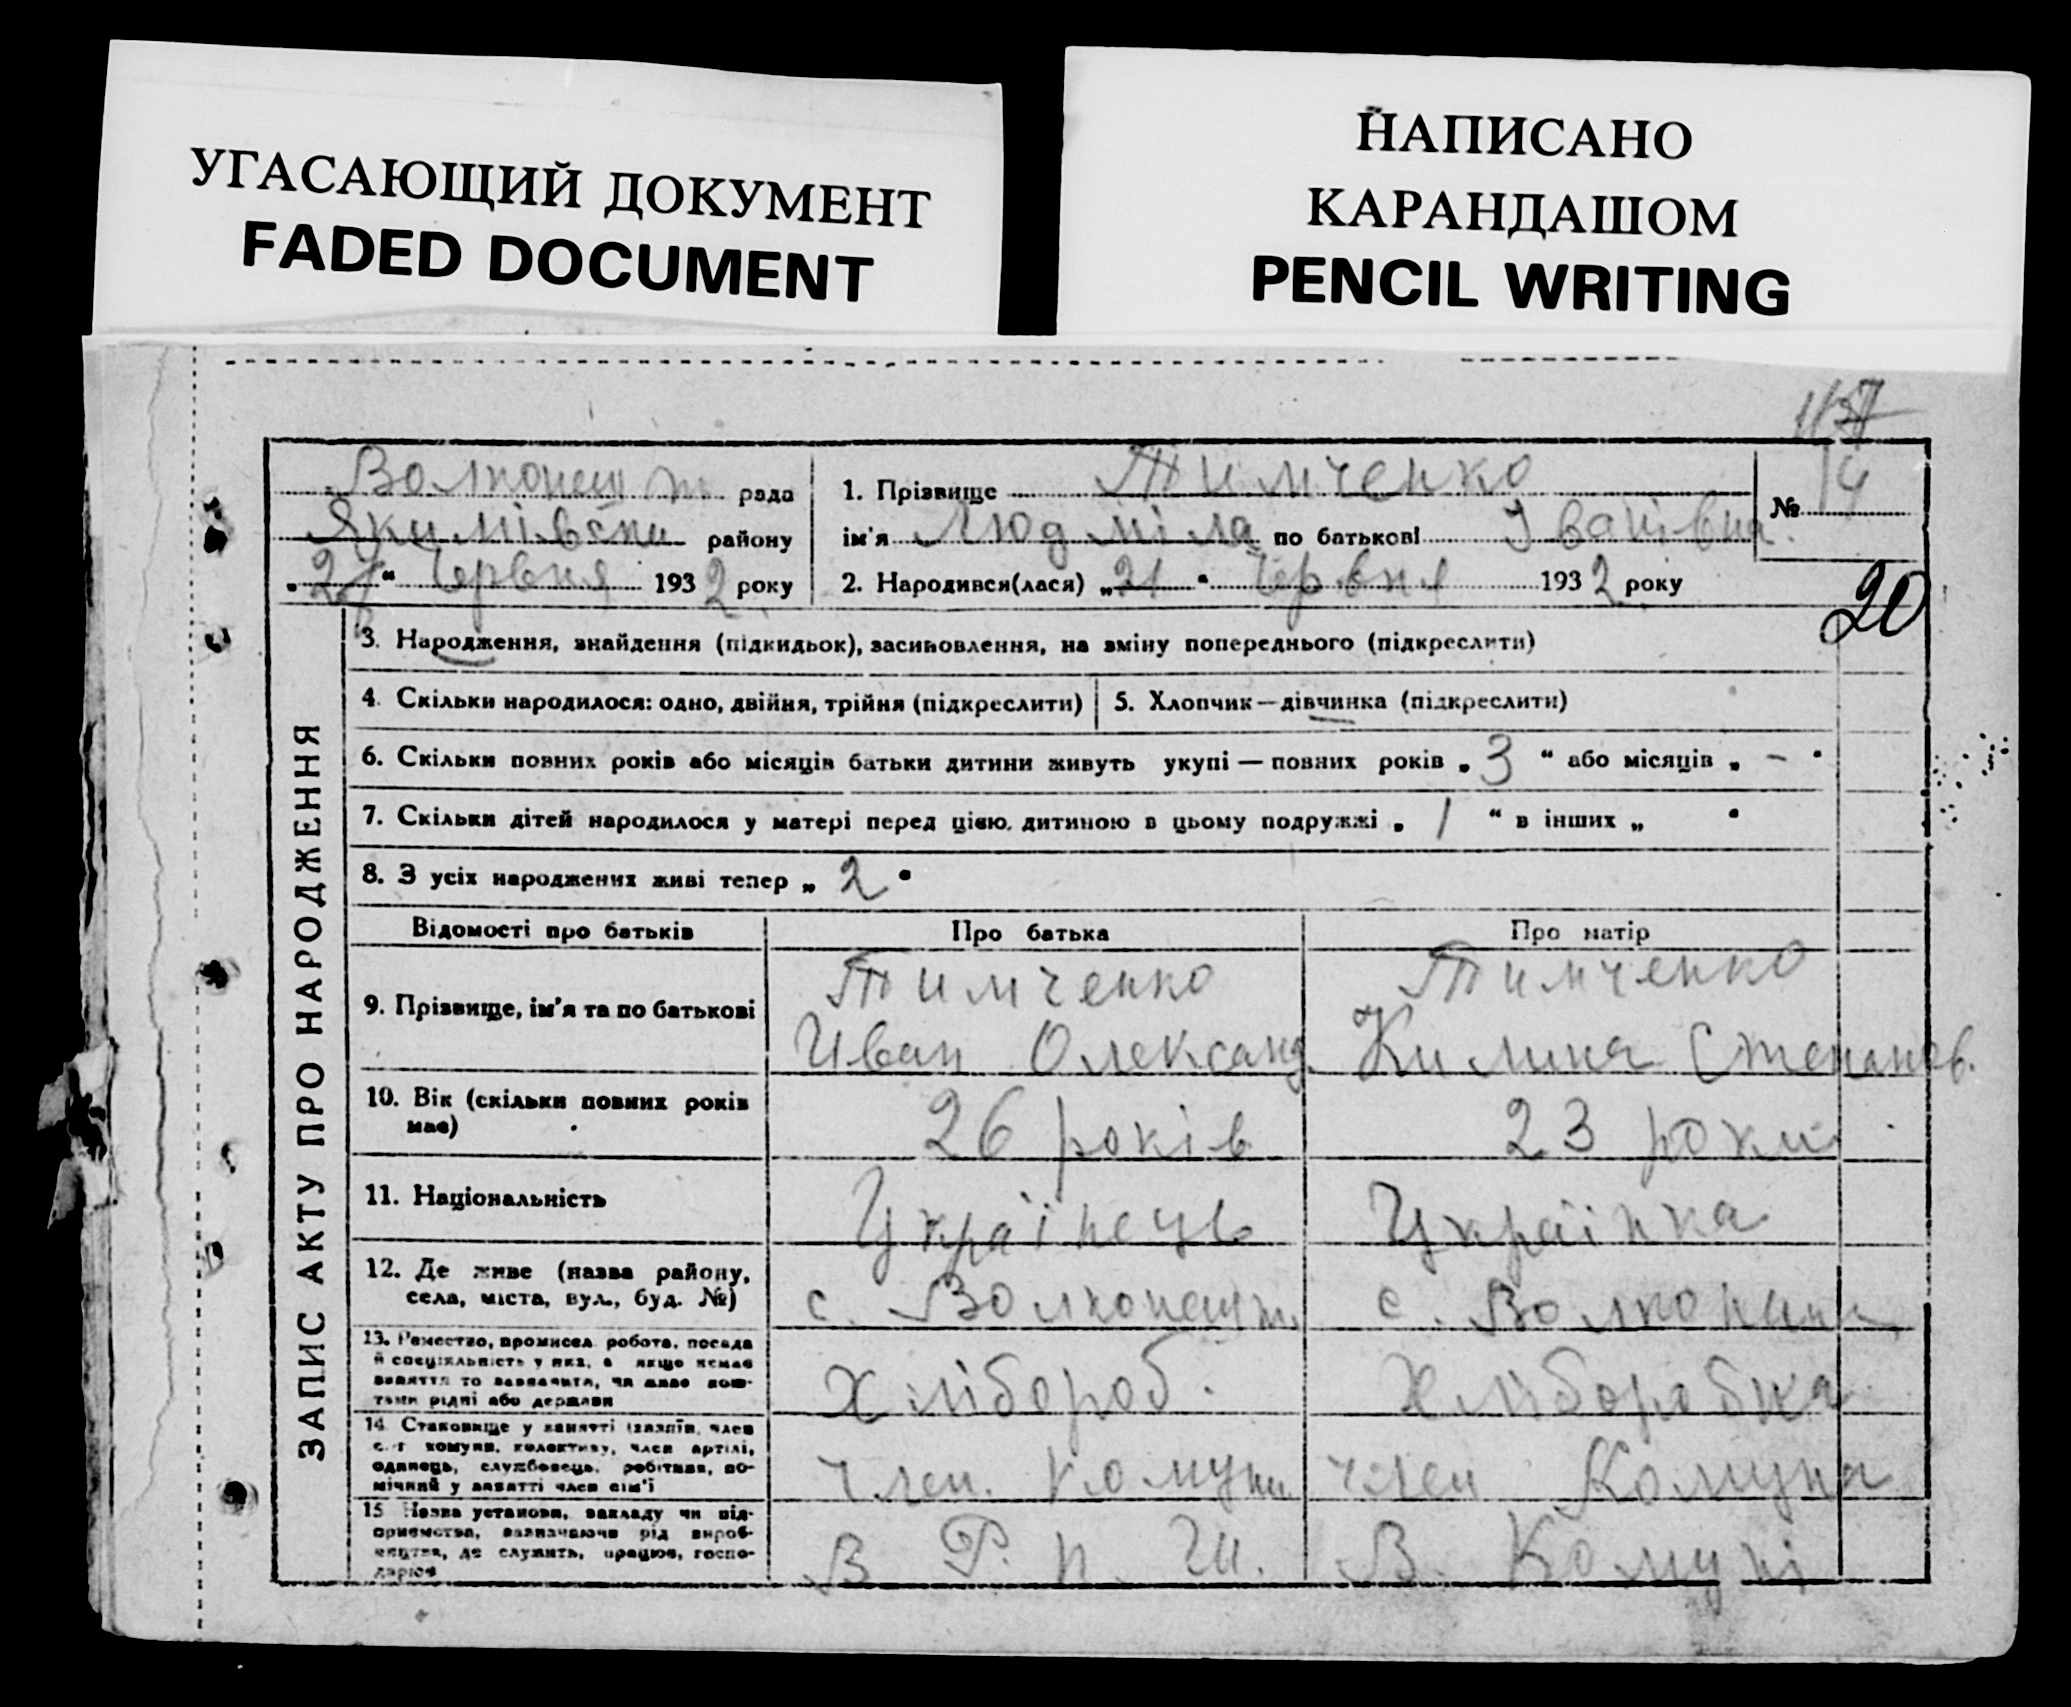 УГАСАЮЩИЙ ДОКУМЕНТ
FADED DOCUMENT
НАПИСАНО
КАРАНДАШОМ
PENCIL WRITING
Волконешт рада
району
Червня 1932 року
1. Прізвище Тимченко
ім'я Людміла по батькові Іванівна
2. Народився(лася) „21“ Червня 1932 року
№ 14
20
ЗАПИС АКТУ ПРО НАРОДЖЕННЯ
3. Народження, знайдення (підкидьок), засиновлення, на зміну попереднього (підкреслити)
4. Скільки народилося: одно, двійня, трійня (підкреслити)
5. Хлопчик—дівчинка (підкреслити)
6. Скільки повних років або місяців батьки дитини живуть укупі — повних років „3“ або місяців „-“
7. Скільки дітей народилося у матері перед цією дитиною в цьому подружжі „1“ в інших „ “
8. З усіх народжених живі тепер „2“
Відомості про батьків Про батька Про матір
9. Прізвище, ім'я та по батькові
Тимченко
Иван Олександ.
Тимченко
Килина Степанов.
10. Вік (скільки повних років має)
26 років
23 роки
11. Національність
Українець
Українка
12. Де живе (назва району,
села, міста, вул., буд. №)
с. Волконешт.
с.
13. Ремество, промисел, робота, посада
й спеціяльність у яка, а якщо немає
заняття то зазначити, чи живе кош-
тами рідні або держави
Хлібороб.
Хліборобка
14. Становище у занятті (хазяїн, член
с.-г комуни, колективу, член артілі,
одинець, службовець, робітник, по-
мічний у занятті член сім'ї
член. комуни
член Комуна
15. Назва установи, закладу чи під-
приємства, зазначаючи рід вироб-
ництва, де служить, працює, госпо-
дарює
В Комуні